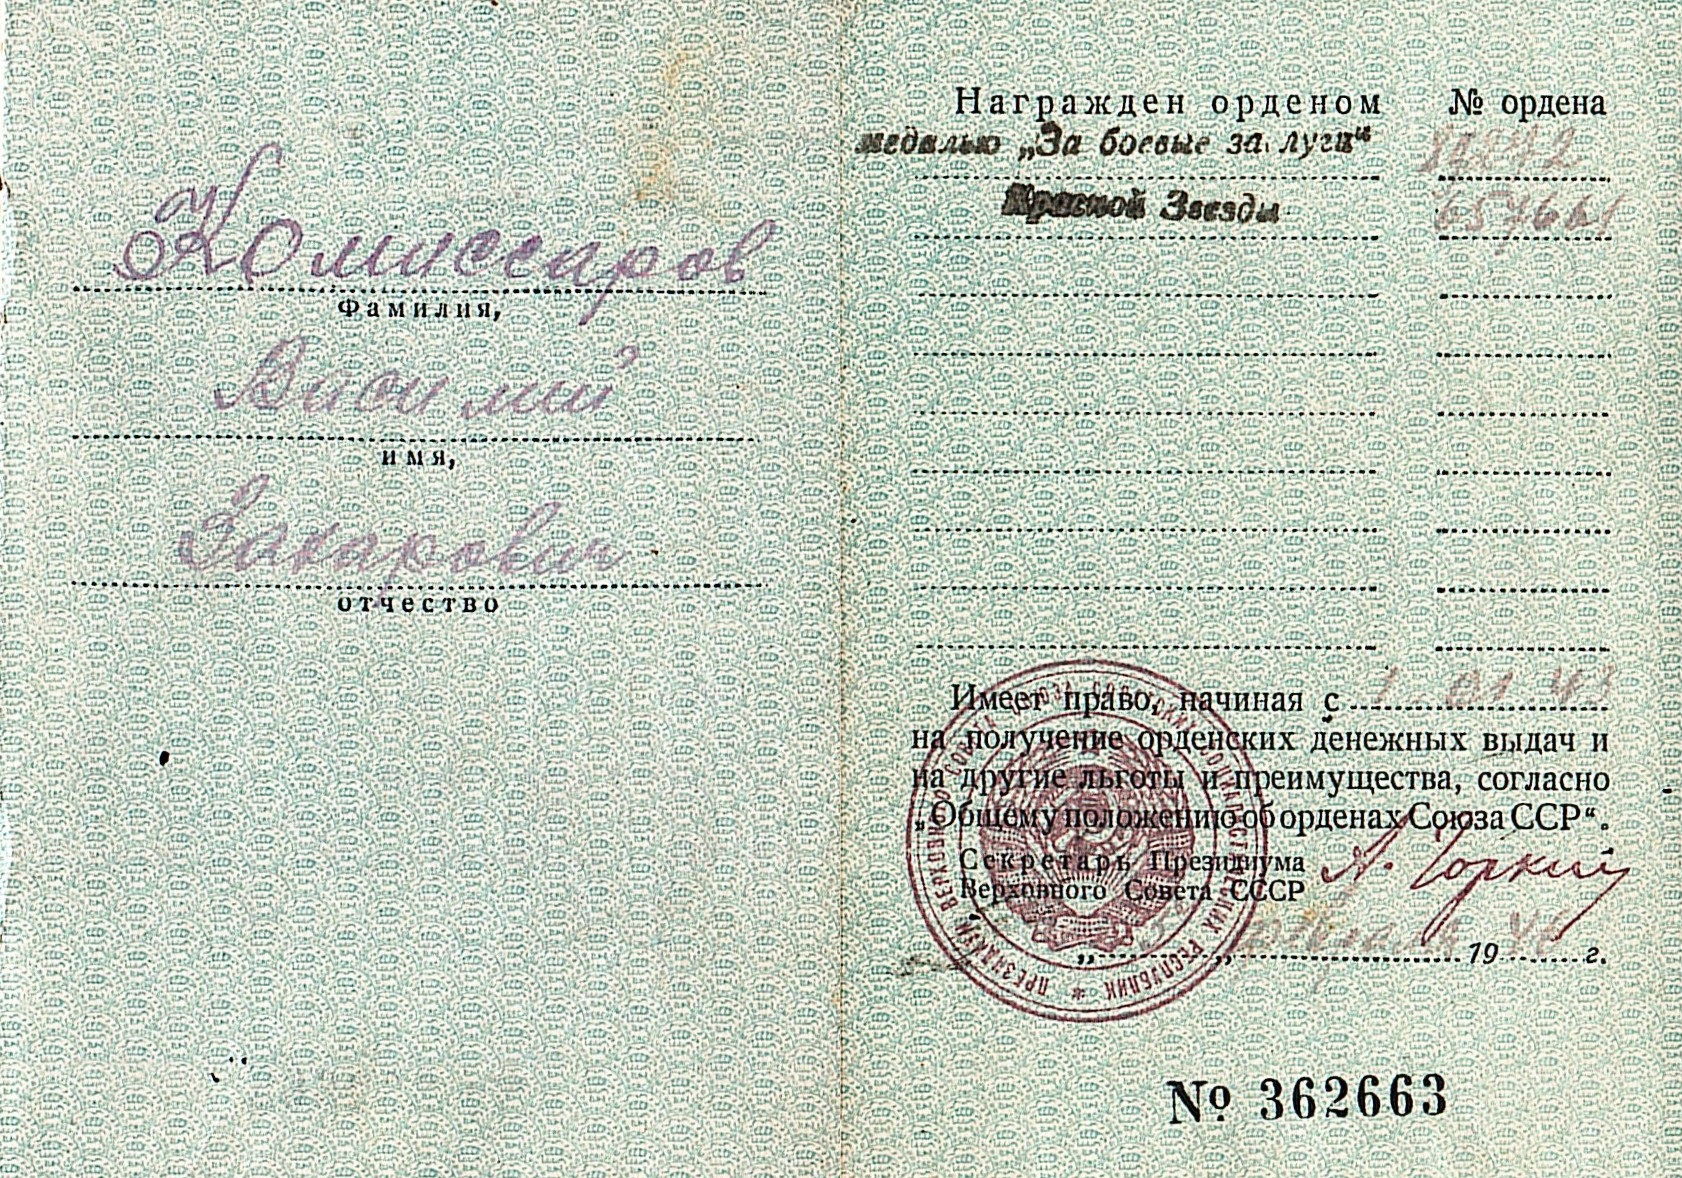 Комиссаров
Фамилия,
Василий
имя,
Захарович
отчество
Награжден орденом № ордена
медалью „За боевые за луги“
Красной Звезды 657661
Имеет право, начиная с 1 01 43
на получение орденских денежных выдач и
на другие льготы и преимущества, согласно
„Общему положению об орденах Союза ССР“.
Секретарь Президиума
Верховного Совета СССР А. Горкин
„ “ февраля 1946 г.
ПРЕЗИДИУМ ВЕРХОВНОГО СОВЕТА СОЮЗА СОВЕТСКИХ СОЦИАЛИСТИЧЕСКИХ РЕСПУБЛИК *
№ 362663